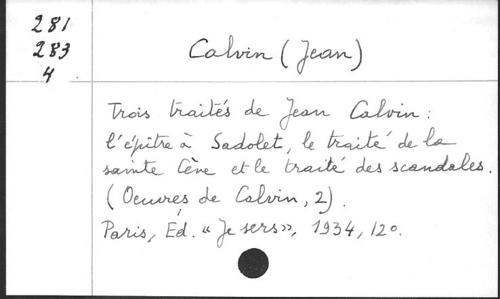 281
283
4
Calvin (Jean)
Trois traités de Jean Calvin :
l'épitre à Sadolet, le traité de la
sainte Cène et le traité des scandales.
(Oeuvres de Calvin, 2).
Paris, Éd. "Je sers", 1934, 12o.